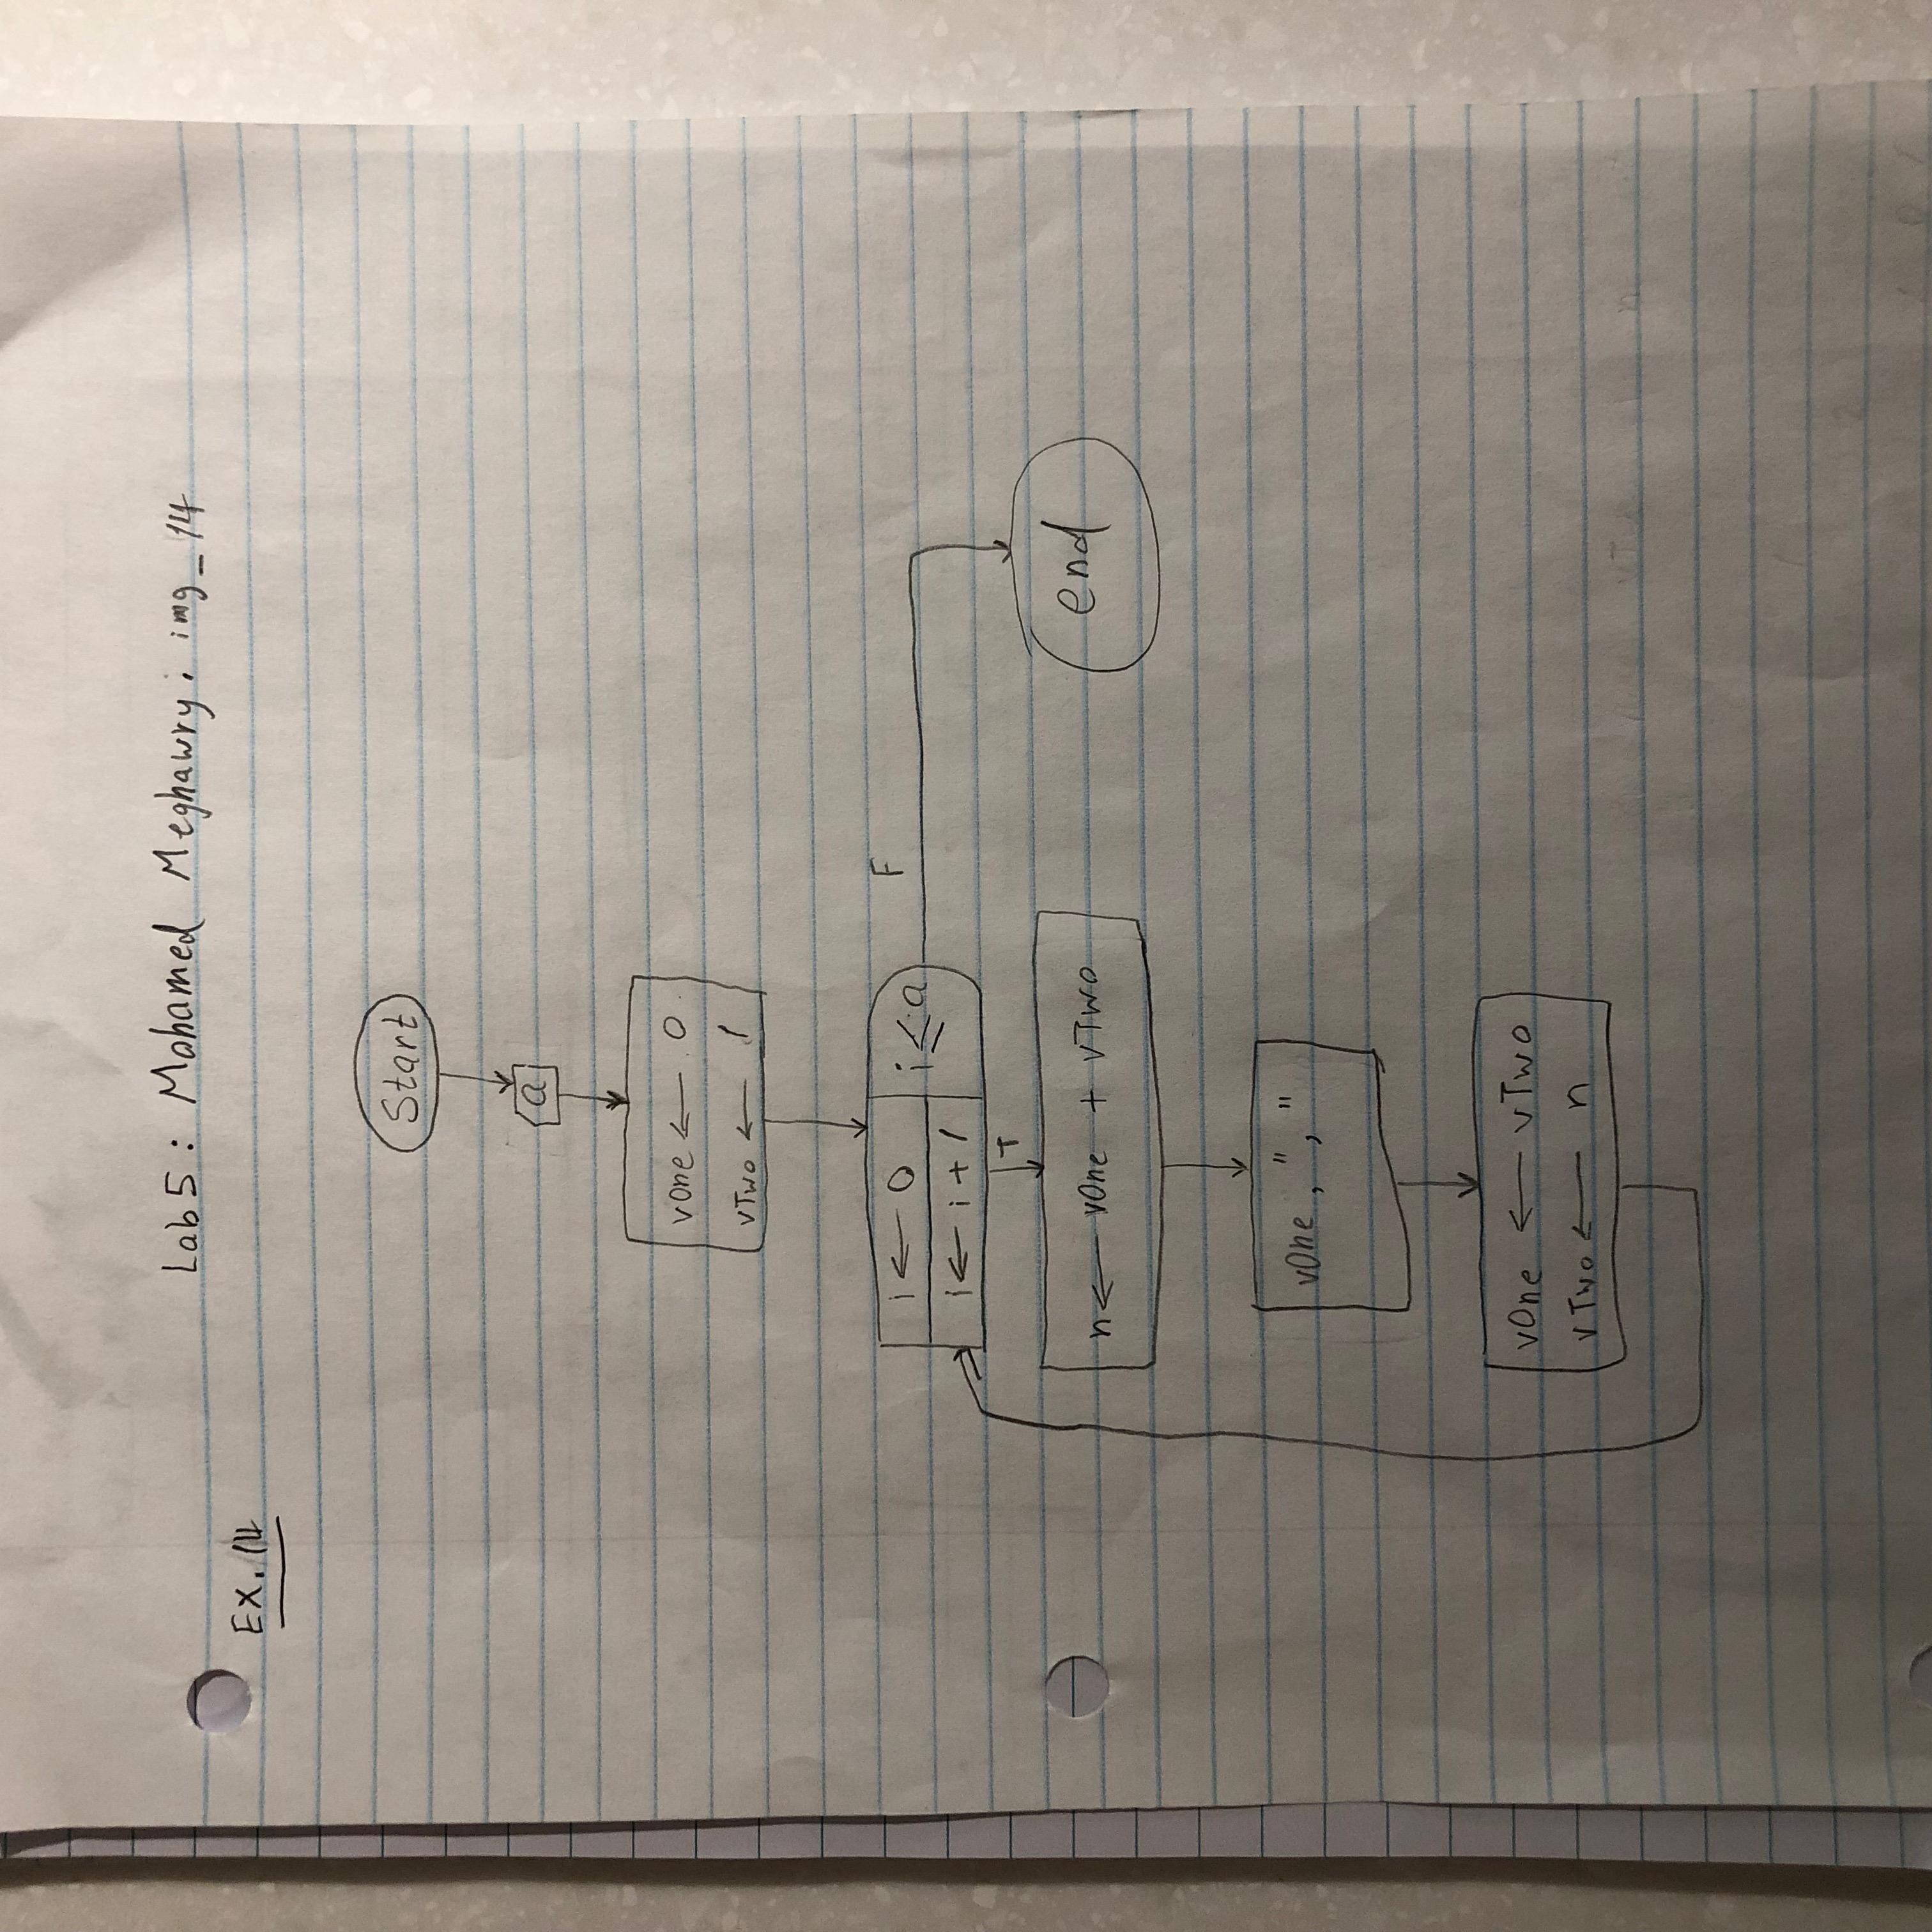 Lab 5 : Mohamed Meghawry : img_14
EX. 14
Start
a
vOne ← 0
vTwo ← 1
i ← 0
i ≤ a
F
i ← i + 1
T
n ← vOne + vTwo
end
vOne , " , "
vOne ← vTwo
vTwo ← n